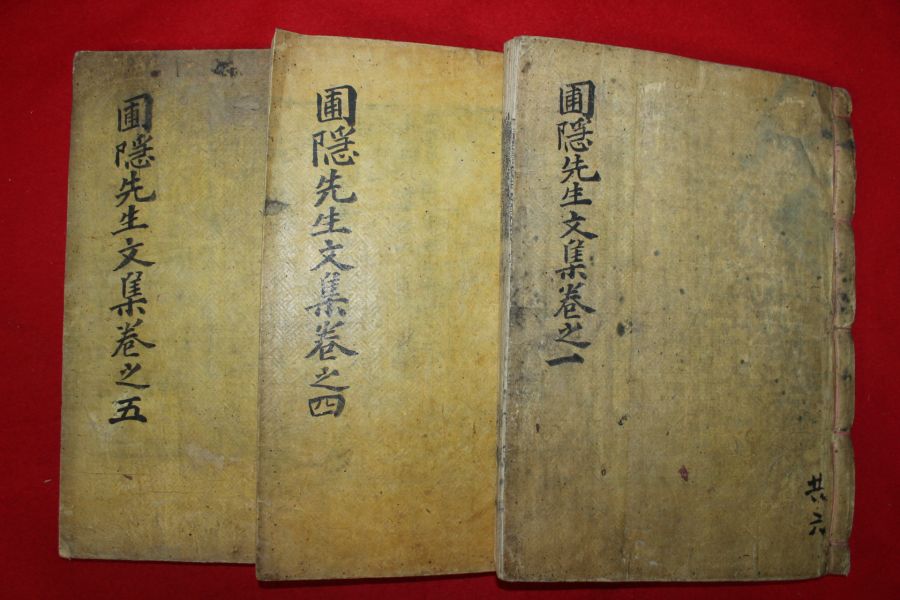 圃隱先生文集卷之一
共六
圃隱先生文集卷之四
圃隱先生文集卷之五